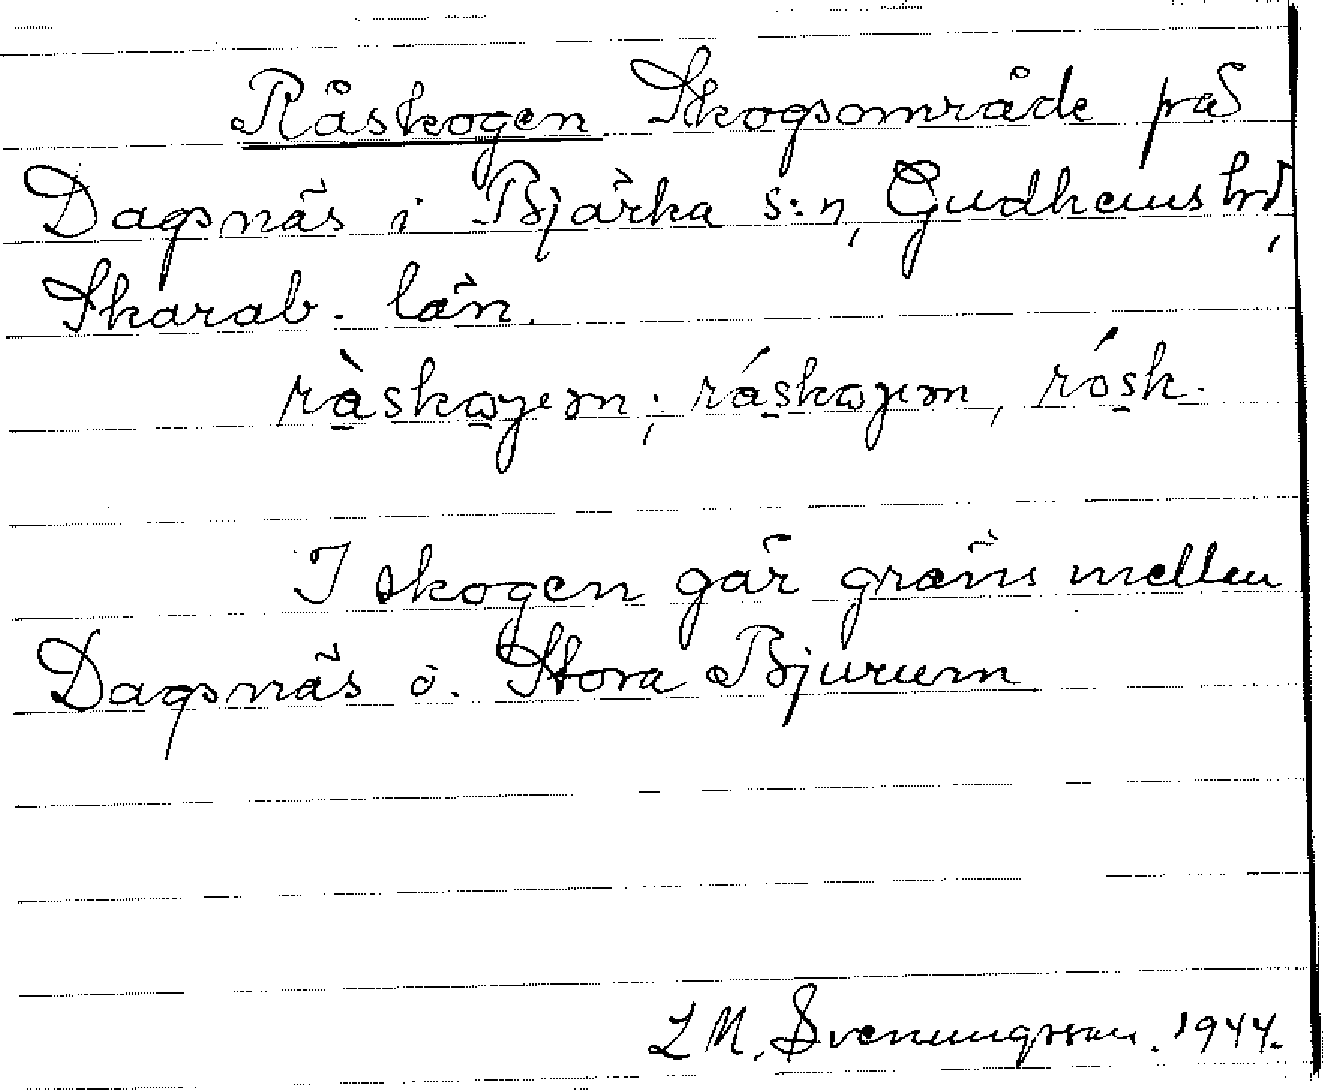 Råskogen Skogsområde på
Dagsnäs i Bjärka s:n, Gudhems hd,
Skarab. län.
ràskogen; ráskogen, rósk.
I skogen går gräns mellan
Dagsnäs o. Stora Bjurum
L M. Svenungsson. 1944.